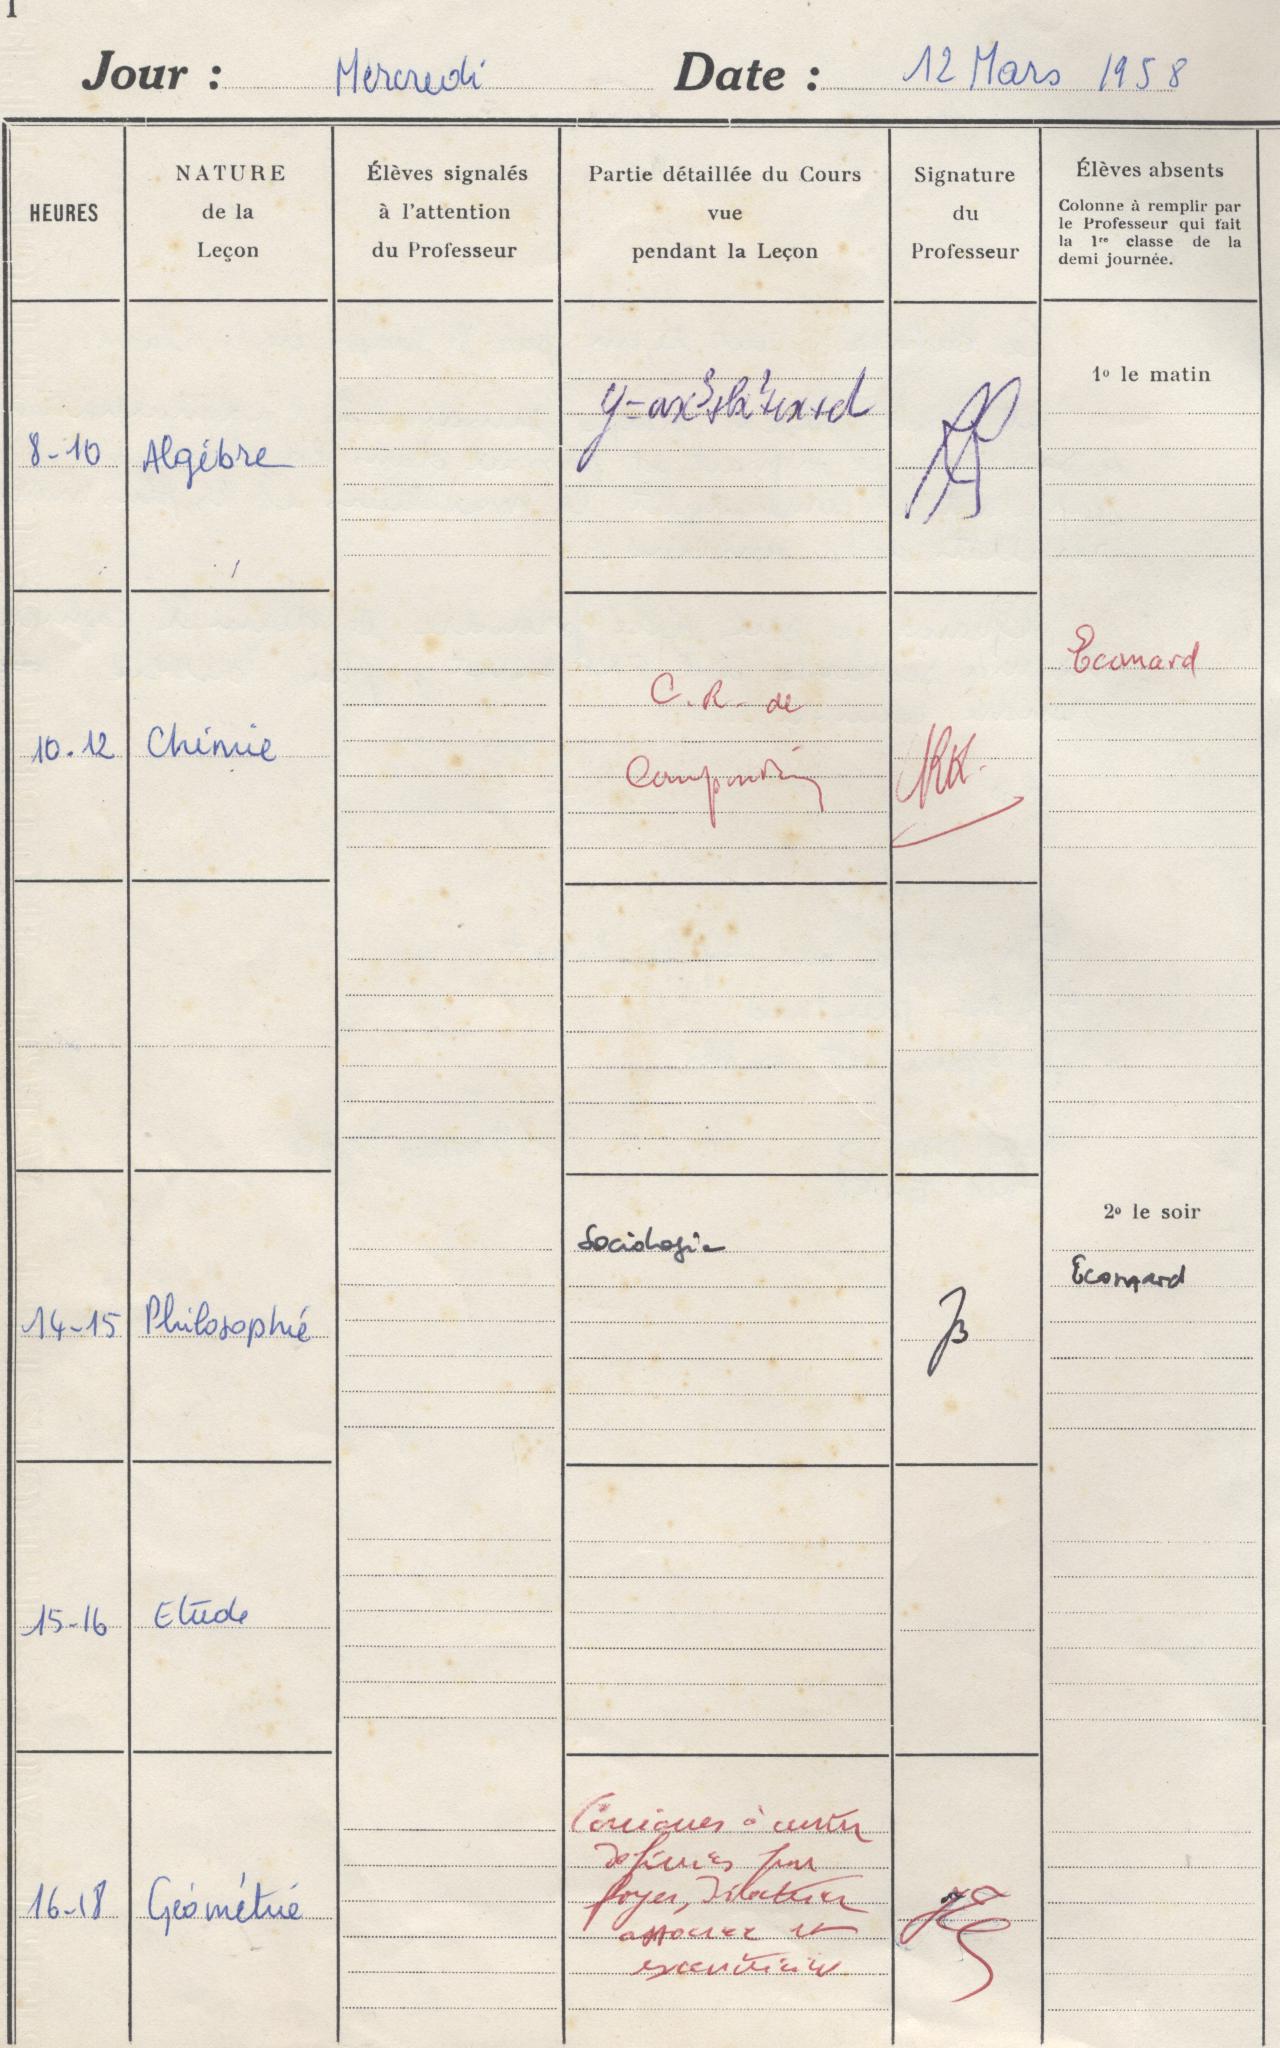 Jour : Mercredi Date : 12 Mars 1958
HEURES
NATURE
de la
Leçon
Élèves signalés
à l'attention
du Professeur
Partie détaillée du Cours
vue
pendant la Leçon
Signature
du
Professeur
Élèves absents
Colonne à remplir par
le Professeur qui fait
la 1re classe de la
demi journée.
1o le matin
8-10 Algébre y=ax³+bx²+cx+d
Econard
10.12 Chimie
C.R. de
Composition
2o le soir
Econard
14-15 Philosophie Sociologie
15-16 Etude
16-18 Géométrie
Coniques à centre
définies par
foyer, directrice
associée et
excentricité